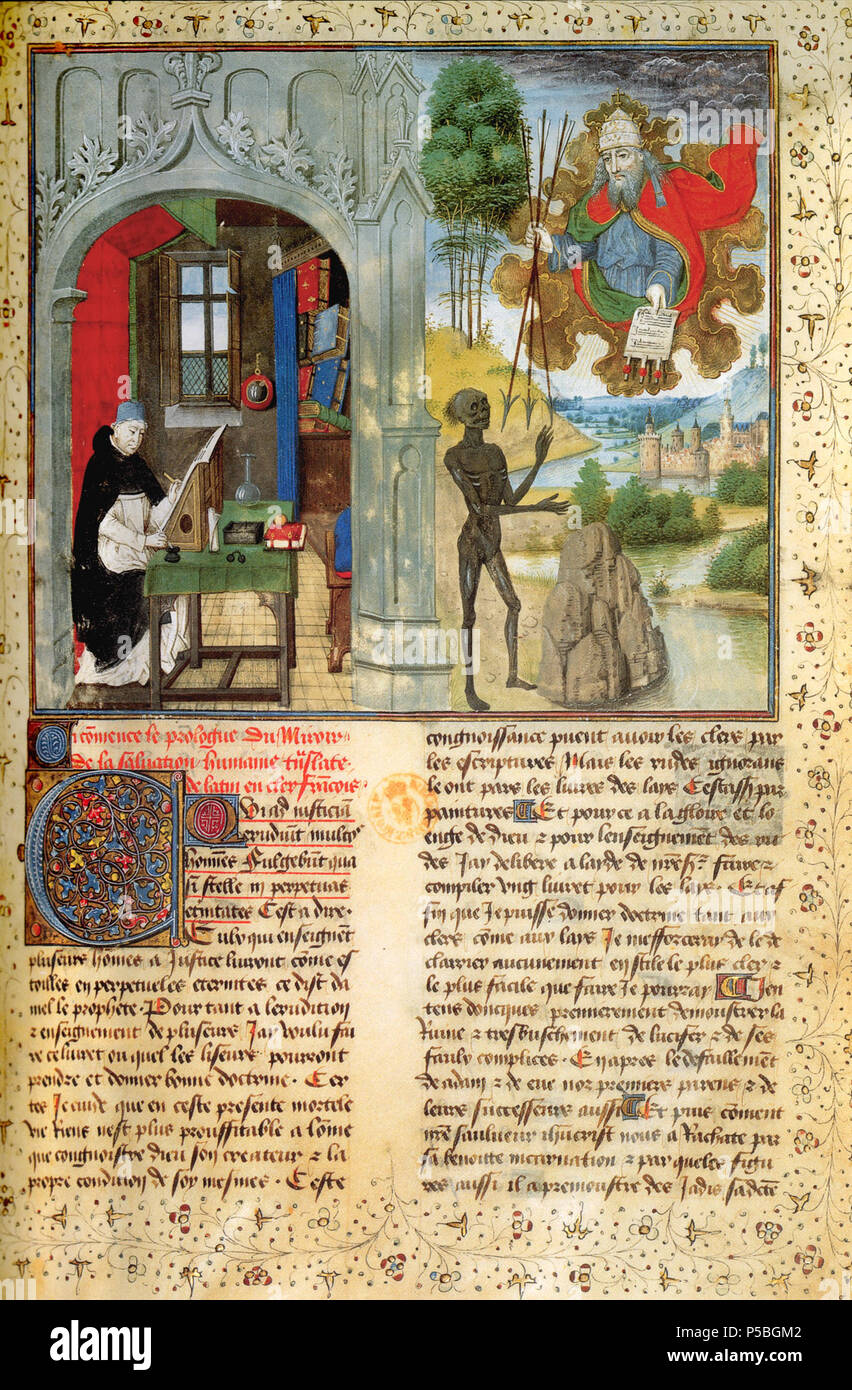 Ci cõmence le prologue du Miroir
de la saluation humaine trãslate
de latin en cler francois
Qui ad iusticiam
erudiunt multos
hommes fulgebunt qua
si stelle in perpetuas
eternitates Cest a dire
Ceulx qui enseignent
pluseurs hommes a Justice luiront come es
toilles en perpetueles eternites ce dist da
niel le prophete Pour tant a lerudition
⁊ enseignement de pluseurs Jay voulu fai
re ce liuret ou quel les liseurs pourront
prendre et donner bonne doctrine Cer
tes Je cuide que en ceste presente mortele
vie Riens nest plus prouffitable a lõme
que congnoistre dieu son createur ⁊ la
propre condicion de soy mesmes Ceste
congnoissance peuent auoir les clers par
les escriptures Mais les rudes ignorans
le ont par les liures des lays Cestassr par
paintures Et pour ce a la gloire et lo
enge de dieu ⁊ pour lenseignement des ru
des Jay delibere a layde de nre sr faire ⁊
compiler vng liuret pour les lays Et af
fin que Je puisse donner doctrine tant aux
clers come aux lays Je mefforceray de le de
clairier aucunement en stile le plus cler ⁊
le plus facile que faire Je pourray Jen
tens doncques premierement demonstrer la
Ruine ⁊ tresbuschement de lucifer ⁊ de ses
faulx complices En apres le defaillement
de adam ⁊ de eue noz premiers parens ⁊ de
leurs successeurs aussi Et puis cõment
nre sauueur ihucrist nous a Rachate par
sa benoitte incarnation ⁊ par queles figu
res aussi il a premonstre des Jadis sad
alamy
alamy
Image ID: P5BGM2
www.alamy.com